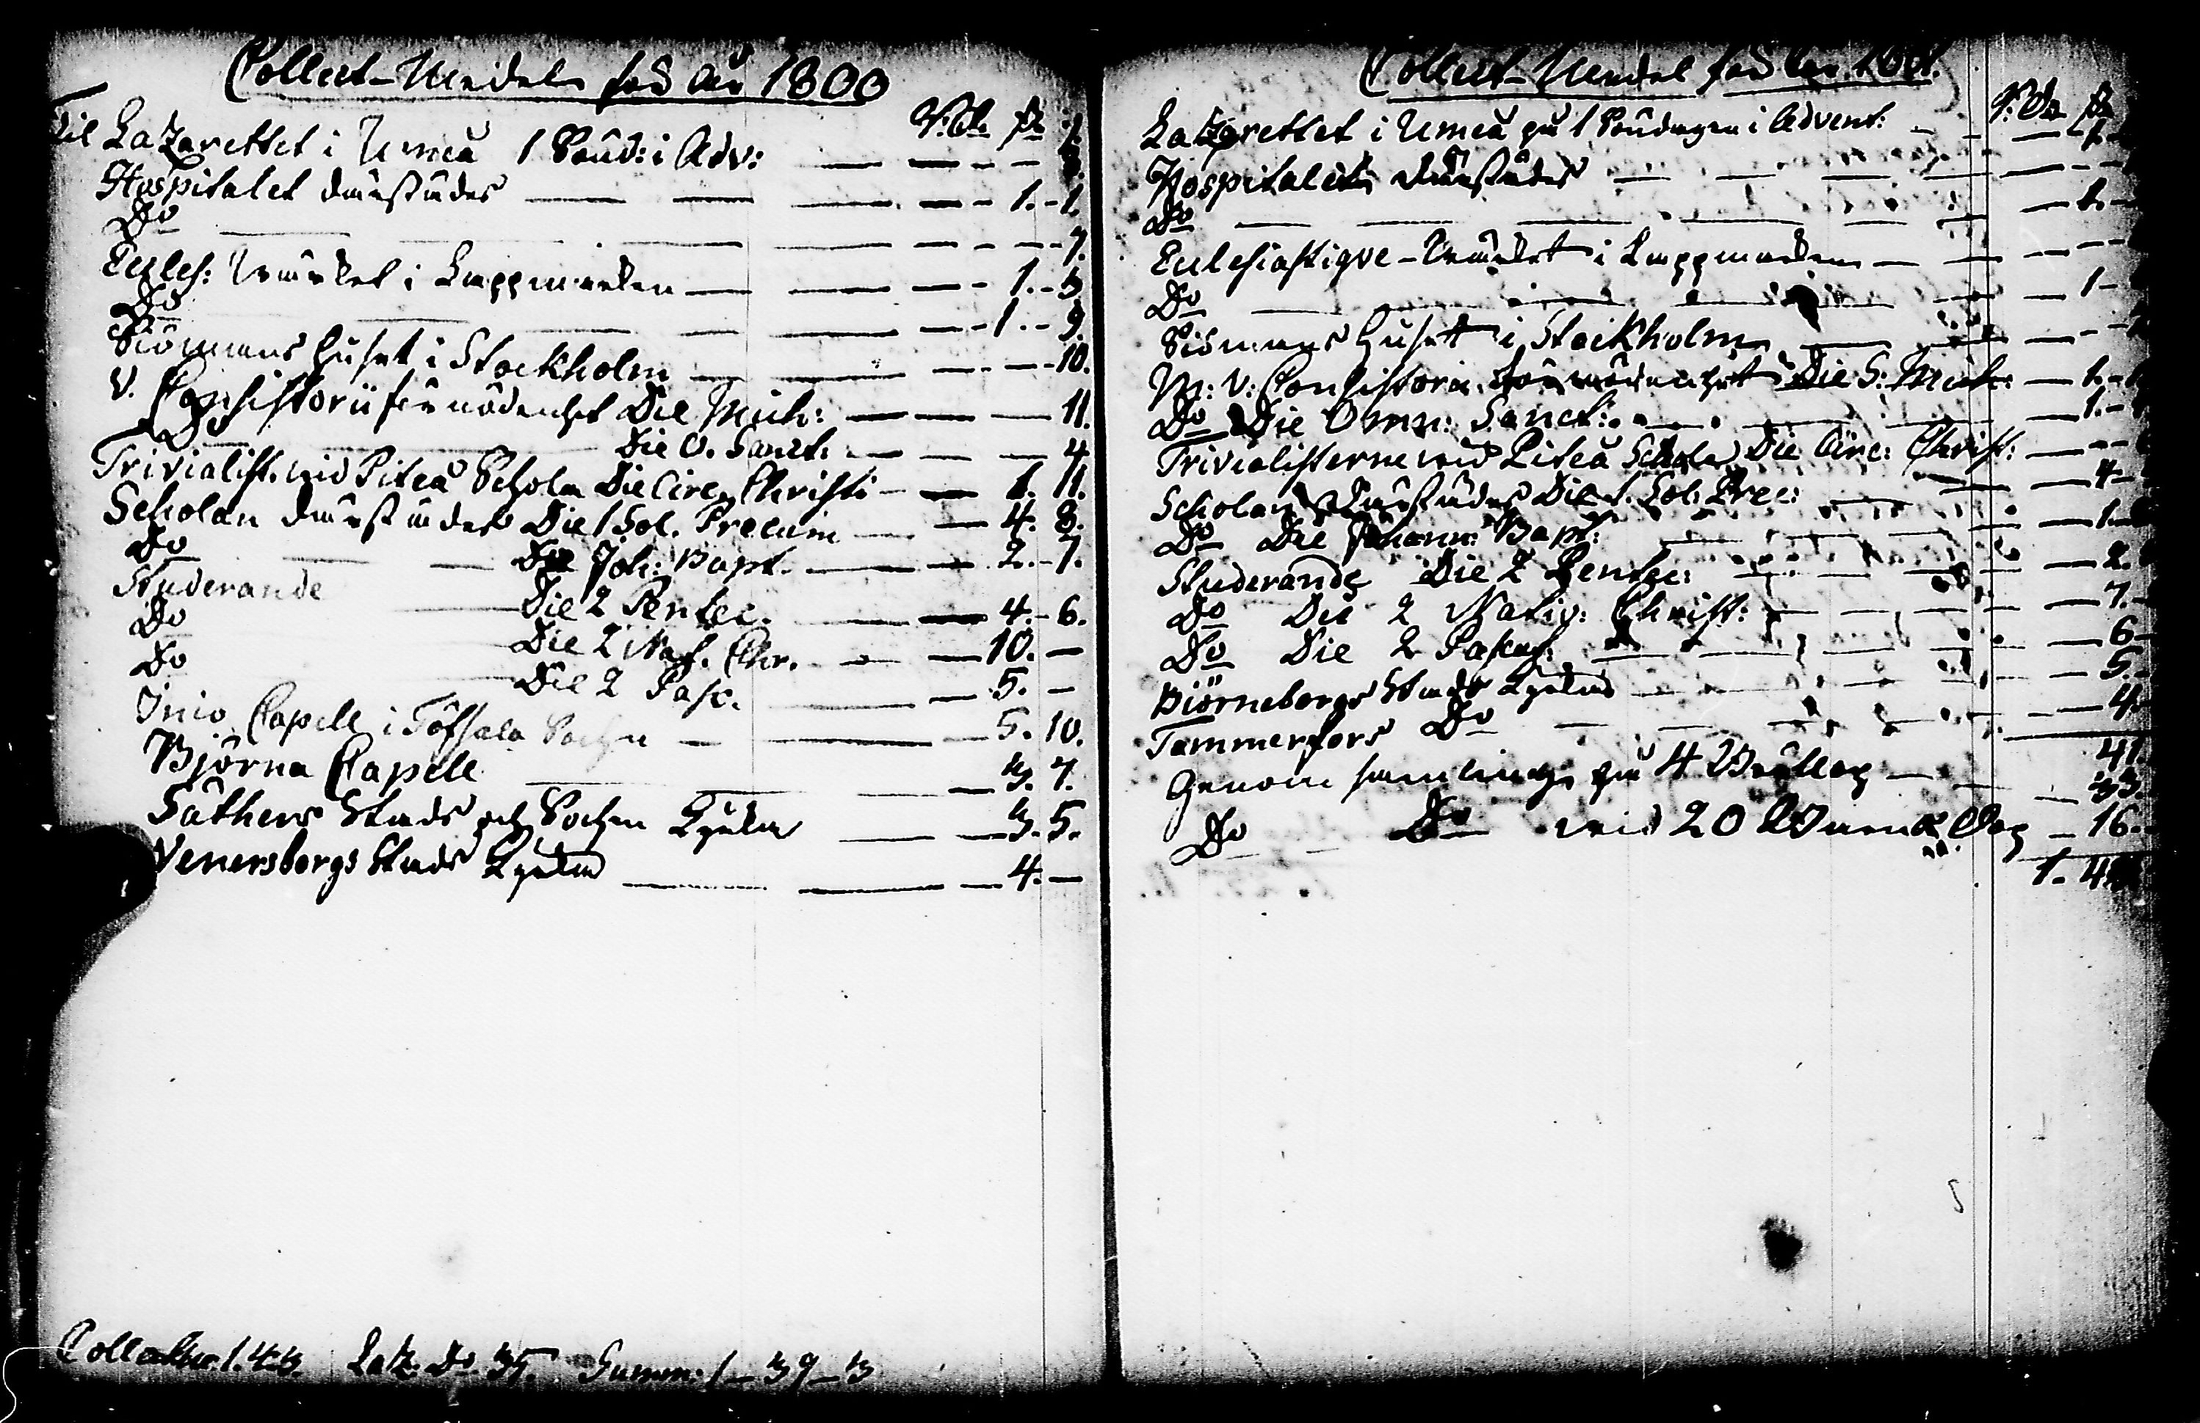 Collect-Medel för År 1800
R:d. ß r
Til Lazarettet i Umeå 1 Sönd: i Adv: — — — 8.
Hospitalet därstädes — — — 1.-1.
Do — — — 7.
Eccles: Uverket i Lappmarken — — 1.-3.
Do — — — 1.-9.
Siömans huset i Stockholm — — — 10.
V. Consistorii förnödenhet Die Mich: — — 11.
Do — Die O. Sanct: — — 4.
Trivialist. wid Piteå Schola Die Circ. Christi — 1. 11.
Scholan därstädes Die 1 Sol. Precum — 4. 8.
Do — — Die Joh: Bapt. — — 2.-7.
Studerande — Die 2 Pentec. — 4.-6.
Do — Die 2 Nat. Chr. — 10. —
Do — Die 2 Pasc. — 5. —
Inio Capell i Töfsala Sochn — — 5. 10.
Björna Capell — — 3. 7.
Säthers Stads och Sochn Kyrka — 3. 5.
Wenersborgs Stads Kyrka — — 4. —
Collecter 1.43. Laz: Do 35. Summ: 1 — 39 — 3
Collect-Medel för År 1801.
R:dr ß
Lazarettet i Umeå på 1 Söndagen i Advent: — 1.-
Hospitalets därstädes — — —
Do — — — 1.-
Ecclesiastique-Verket i Lappmarken — —
Do — — — 1-
Siömans huset i Stockholm — — —
M: V: Consistorii förnödenhet Die S: Mich: — 1.-
Do Die Omn: Sanct: — — 1.-
Trivialisterne wid Piteå Schola Die Circ: Christ: —
Scholan därstädes Die 1. Sol. Prec: — 4-
Do Die Johann: Bapt: — 1.
Studerande Die 2 Pentec: — 2.
Do Die 2 Nativ: Christ: — 7.
Do Die 2 Pasch: — 6-
Biörneborgs Stads Kyrka — 5.-
Tammerfors Do — — 4.
41
Genom samlingar på 4 Bröllop — 33.
Do Do wid 20 Barns Dop — 16.
1. 4